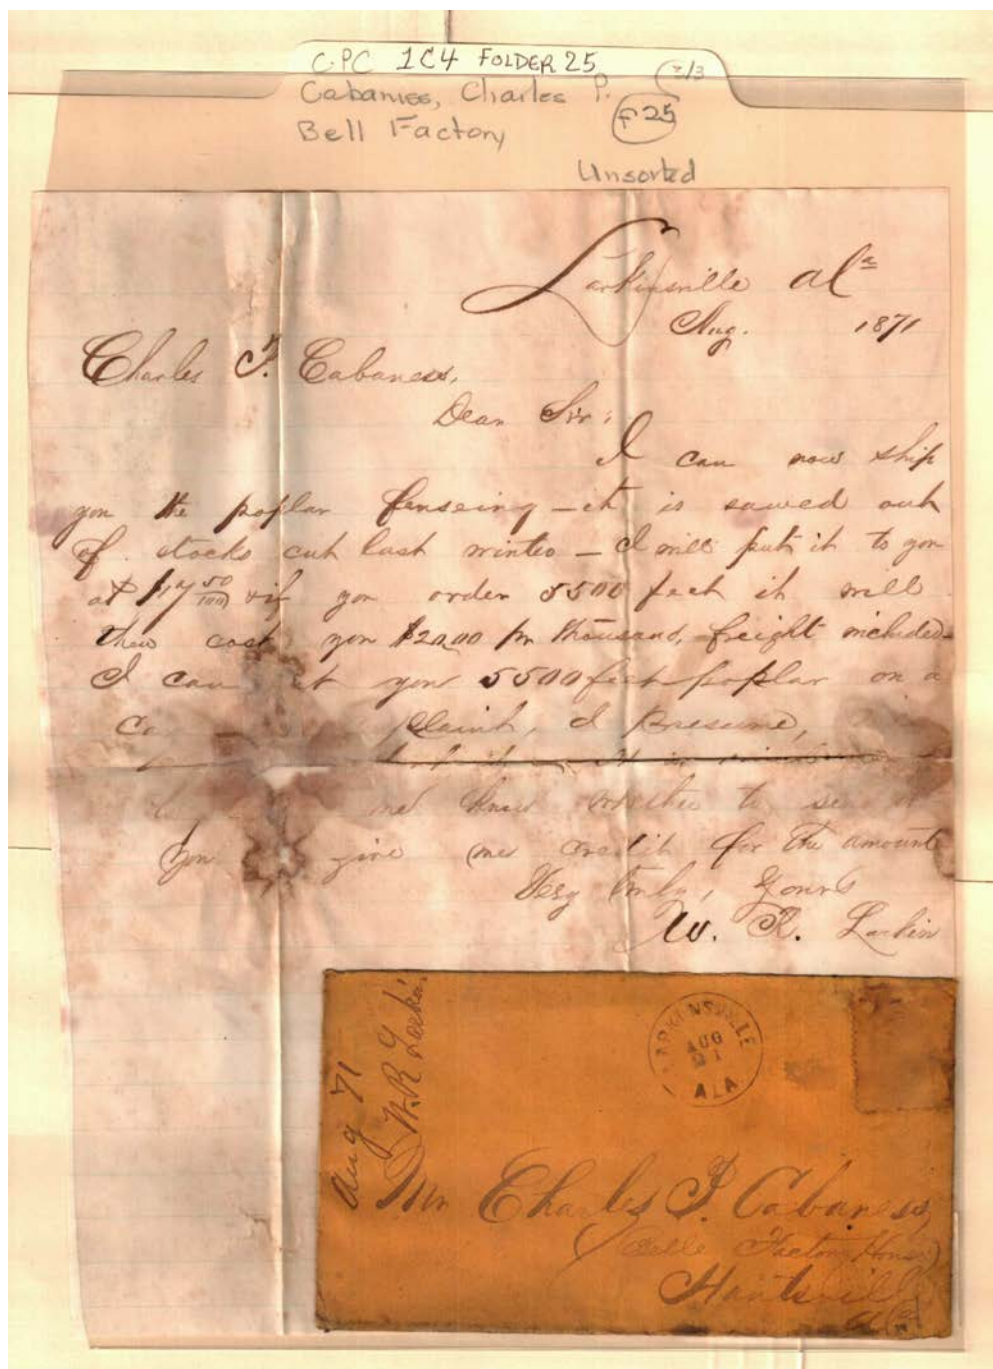 C.PC 1C4 FOLDER 25
2/3
Cabaniss, Charles P.
F25
Bell Factory
Unsorted
Larkinsville Ala
Aug. 1871
Charles P. Cabaness,
Dear Sir:
I can now ship
you the poplar fenseing – it is sawed out
of stocks cut last winter – I will put it to you
at $17 50/100 & if you order 5500 feet it will
then cost you $20.00 per thousand, freight included
I can you 5500 feet poplar on a
I Presume,
me know whether to send it
You give me credit for the amount
Very truly, Yours
W. R. Larkin
Aug 71
W.R. Larkin
LARKINSVILLE
AUG
ALA
Mr Charles P. Cabaness
(Belle Factory House)
Huntsville
Ala